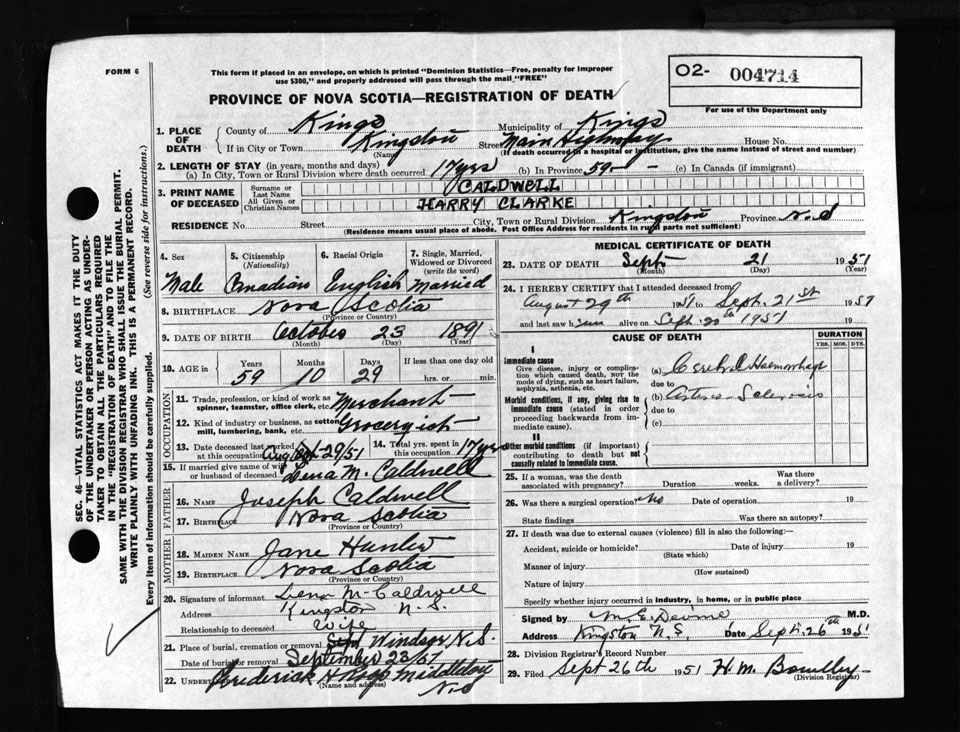 FORM 6
This form if placed in an envelope, on which is printed "Dominion Statistics—Free, penalty for improper
use $300," and properly addressed will pass through the mail "FREE"
O2- 004714
For use of the Department only
PROVINCE OF NOVA SCOTIA—REGISTRATION OF DEATH
SEC. 46—VITAL STATISTICS ACT MAKES IT THE DUTY
OF THE UNDERTAKER OR PERSON ACTING AS UNDER-
TAKER TO OBTAIN ALL THE PARTICULARS REQUIRED
IN THE "REGISTRATION OF DEATH" AND TO FILE THE
SAME WITH THE DIVISION REGISTRAR WHO SHALL ISSUE THE BURIAL PERMIT.
WRITE PLAINLY WITH UNFADING INK. THIS IS A PERMANENT RECORD.
Every item of information should be carefully supplied. (See reverse side for instructions.)
1. PLACE OF DEATH
County of Kings Municipality of Kings
If in City or Town Kingston Street Main Highway House No.
(Name) (If death occurred in a hospital or institution, give the name instead of street and number)
2. LENGTH OF STAY (in years, months and days)
(a) In City, Town or Rural Division where death occurred 17 yrs (b) In Province 59 (c) In Canada (if immigrant)
3. PRINT NAME OF DECEASED
Surname or Last Name CALDWELL
All Given or Christian Names HARRY CLARKE
RESIDENCE No. Street City, Town or Rural Division Kingston Province N.S
(Residence means usual place of abode. Post Office Address for residents in rural parts not sufficient)
4. Sex 5. Citizenship (Nationality) 6. Racial Origin 7. Single, Married, Widowed or Divorced (write the word)
Male Canadian English Married
8. BIRTHPLACE Nova Scotia
(Province or Country)
9. DATE OF BIRTH October 23 1891
(Month) (Day) (Year)
10. AGE in Years Months Days If less than one day old
59 10 29 hrs. or min.
OCCUPATION
11. Trade, profession, or kind of work as spinner, teamster, office clerk, etc. Merchant
12. Kind of industry or business, as cotton mill, lumbering, bank, etc. Grocergist
13. Date deceased last worked at this occupation Aug 29/51 14. Total yrs. spent in this occupation 17 yrs
15. If married give name of wife or husband of deceased Lena M. Caldwell
FATHER
16. NAME Joseph Caldwell
17. BIRTHPLACE Nova Scotia
(Province or Country)
MOTHER
18. MAIDEN NAME Jane Hunter
19. BIRTHPLACE Nova Scotia
(Province or Country)
20. Signature of informant Lena M. Caldwell
Address Kingston N.S.
Relationship to deceased Wife
21. Place of burial, cremation or removal Windsor N.S.
Date of burial or removal September 23/51
22. UNDERTAKER Middleton
(Name and address) N.S
MEDICAL CERTIFICATE OF DEATH
23. DATE OF DEATH Sept 21 1951
(Month) (Day) (Year)
24. I HEREBY CERTIFY that I attended deceased from
August 29th 1951 to Sept. 21st 1951
and last saw him alive on Sept. 20th 1951
CAUSE OF DEATH DURATION
YRS. MOS. DYS.
I
Immediate cause
Give disease, injury or complication which caused death, not the mode of dying, such as heart failure, asphyxia, asthenia, etc.
(a) Cerebral Haemorrhage
due to
Morbid conditions, if any, giving rise to immediate cause (stated in order proceeding backwards from immediate cause).
(b) Arterio Sclerosis
due to
(c)
II
Other morbid conditions (if important) contributing to death but not causally related to immediate cause.
25. If a woman, was the death associated with pregnancy? Duration weeks. Was there a delivery?
26. Was there a surgical operation? No Date of operation 19
State findings Was there an autopsy?
27. If death was due to external causes (violence) fill in also the following:
Accident, suicide or homicide? Date of injury 19
(State which)
Manner of injury
(How sustained)
Nature of injury
Specify whether injury occurred in industry, in home, or in public place
Signed by M.D.
Address Kingston N.S. Date Sept. 26th 1951
28. Division Registrar's Record Number
29. Filed Sept 26th 1951 H. M.
(Division Registrar)